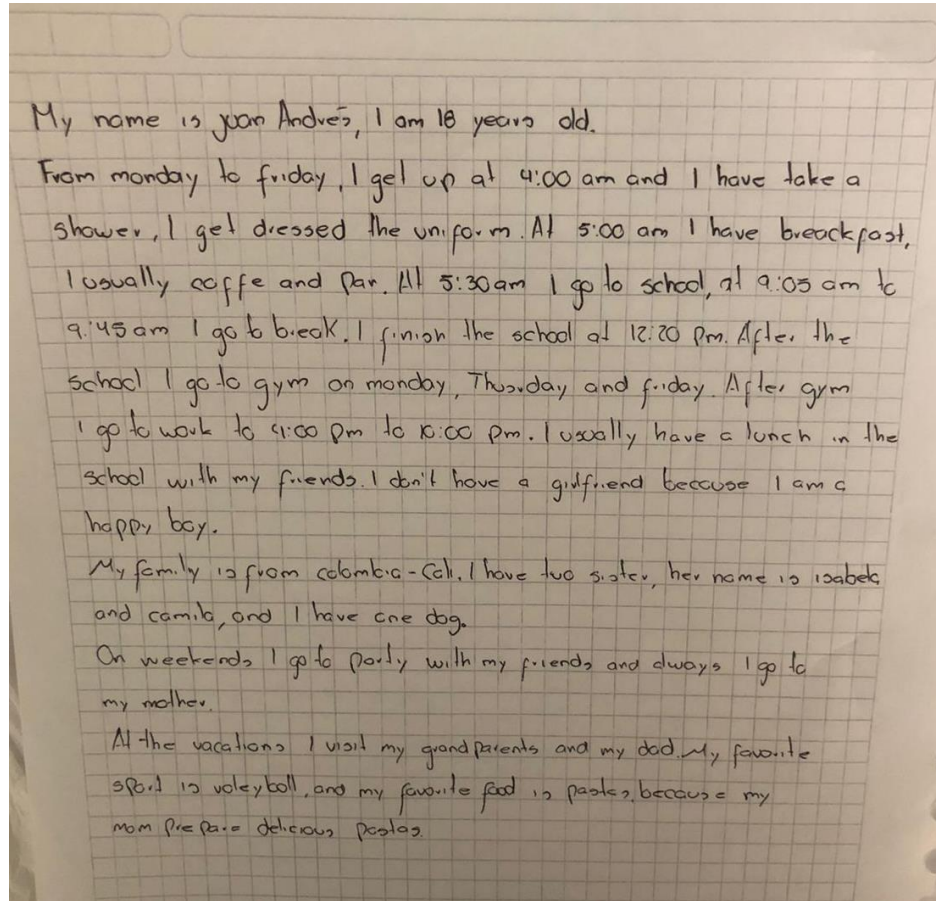 My name is juan Andrés, I am 18 years old.
From monday to friday, I get up at 4:00 am and I have take a
shower, I get dressed the uniform. At 5:00 am I have breackfast,
I usually coffe and Pan. At 5:30 am I go to school, at 9:05 am to
9:45 am I go to break. I finish the school at 12:20 pm. After the
school I go to gym on monday, Thursday and friday. After gym
I go to work to 4:00 pm to 10:00 pm. I usually have a lunch in the
school with my friends. I don't have a girlfriend because I am a
happy boy.
My family is from colombia-Cali. I have two sister, her name is isabela
and camila, and I have one dog.
On weekends I go to party with my friends and always I go to
my mother.
At the vacations I visit my grandparents and my dad. My favorite
sport is voleyboll, and my favorite food is pastas, because my
mom prepare delicious pastas.